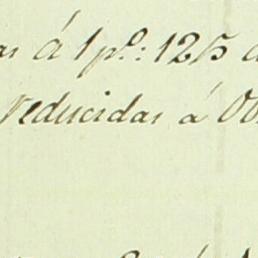 as á 1 p.º: 125 a
reducidas á Ob